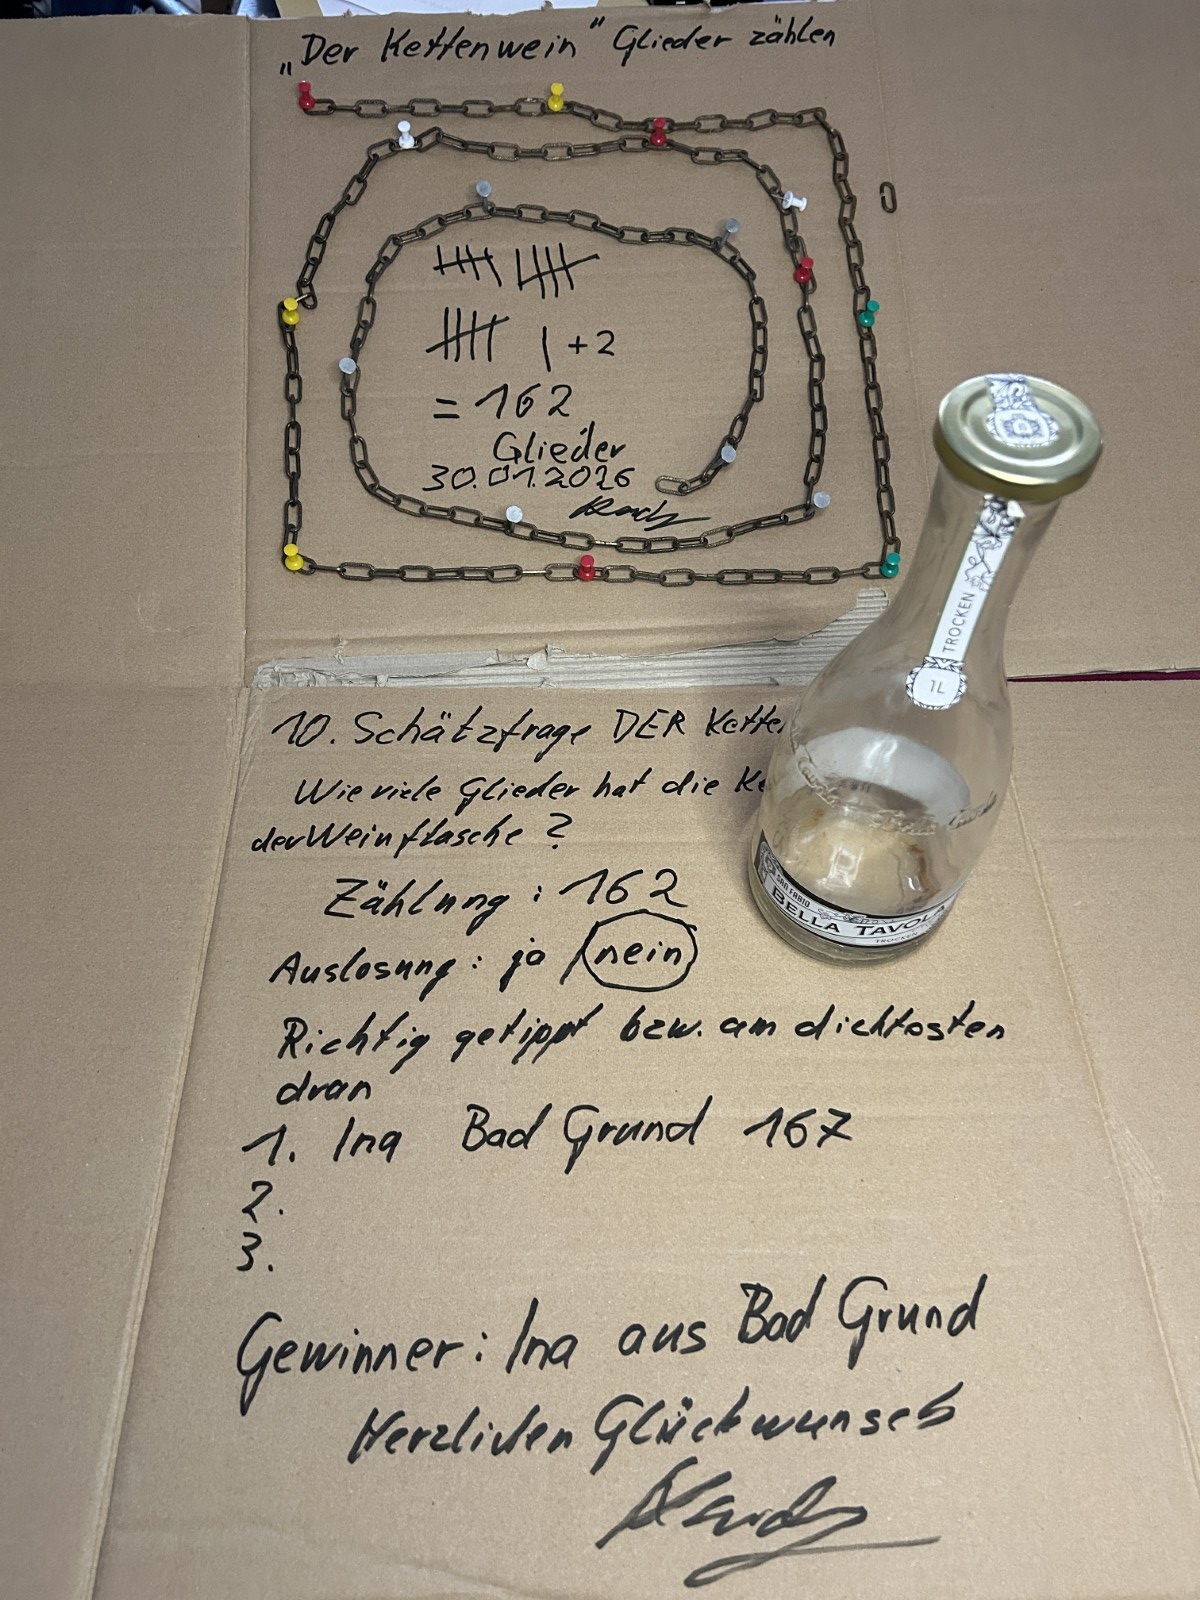 „Der Kettenwein" Glieder zählen
| + 2
= 162
Glieder
30.01.2026
10. Schätzfrage DER Kette
Wie viele Glieder hat die Ke
der Weinflasche ?
Zählung : 162
Auslosung : ja / nein
Richtig getippt bzw. am dichtesten
dran
1. Ina Bad Grund 167
2.
3.
Gewinner : Ina aus Bad Grund
Herzlichen Glückwunsch
TROCKEN
1L
SAN FABIO
BELLA TAVOLA
TROCKEN